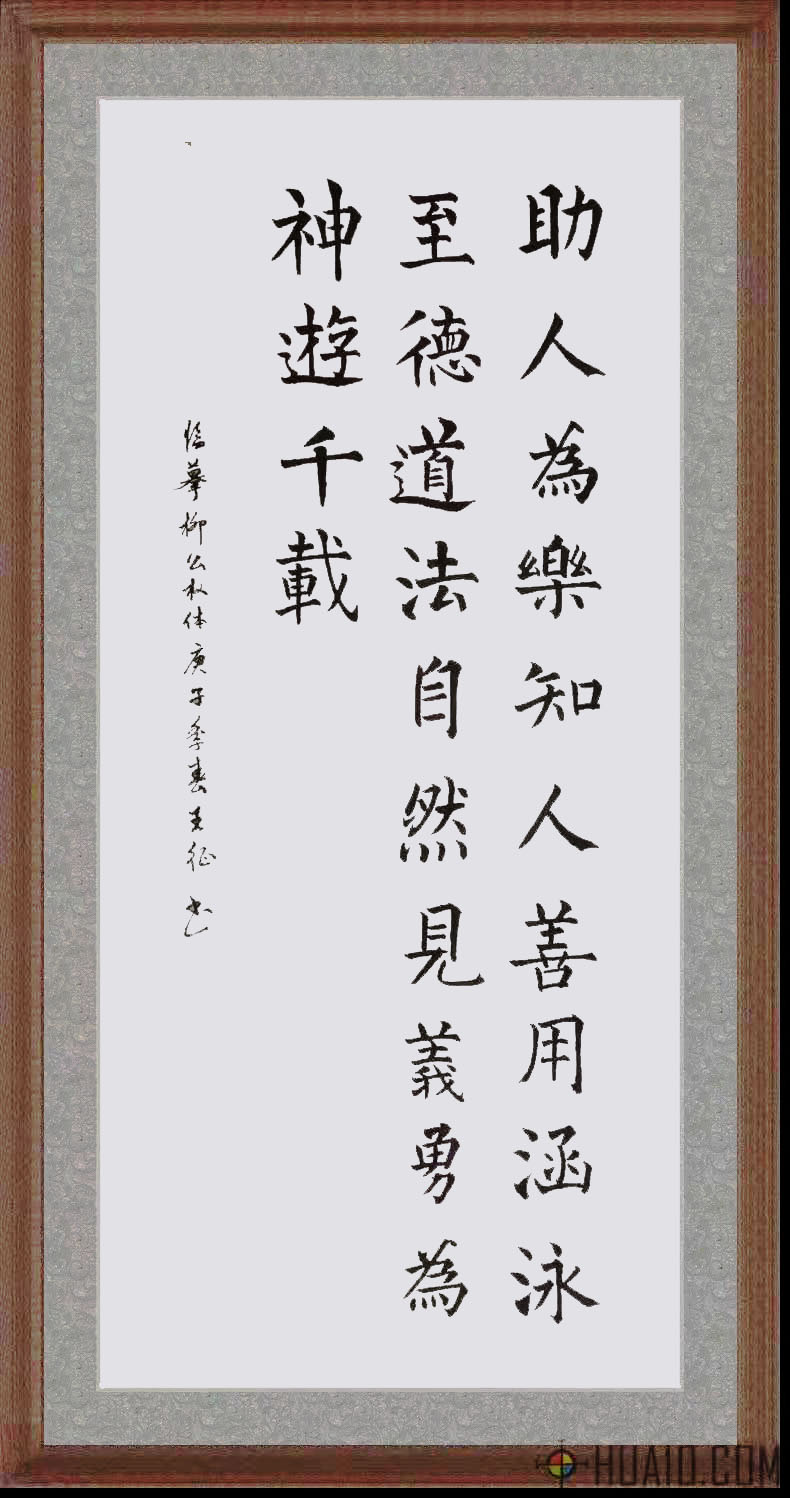 助人為樂知人善用涵泳
至德道法自然見義勇為
神遊千載
临摹柳公权体庚子季春王征书
HUA10.COM